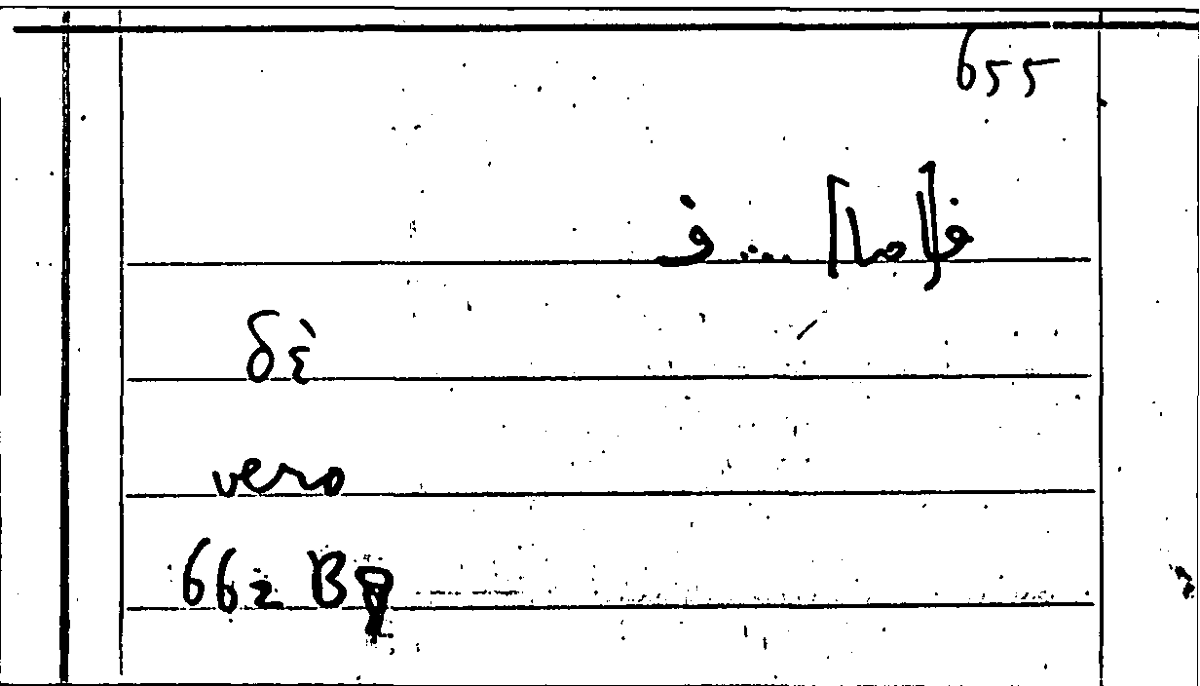 655
ف[اما] ... ف
δὲ
vero
662 B